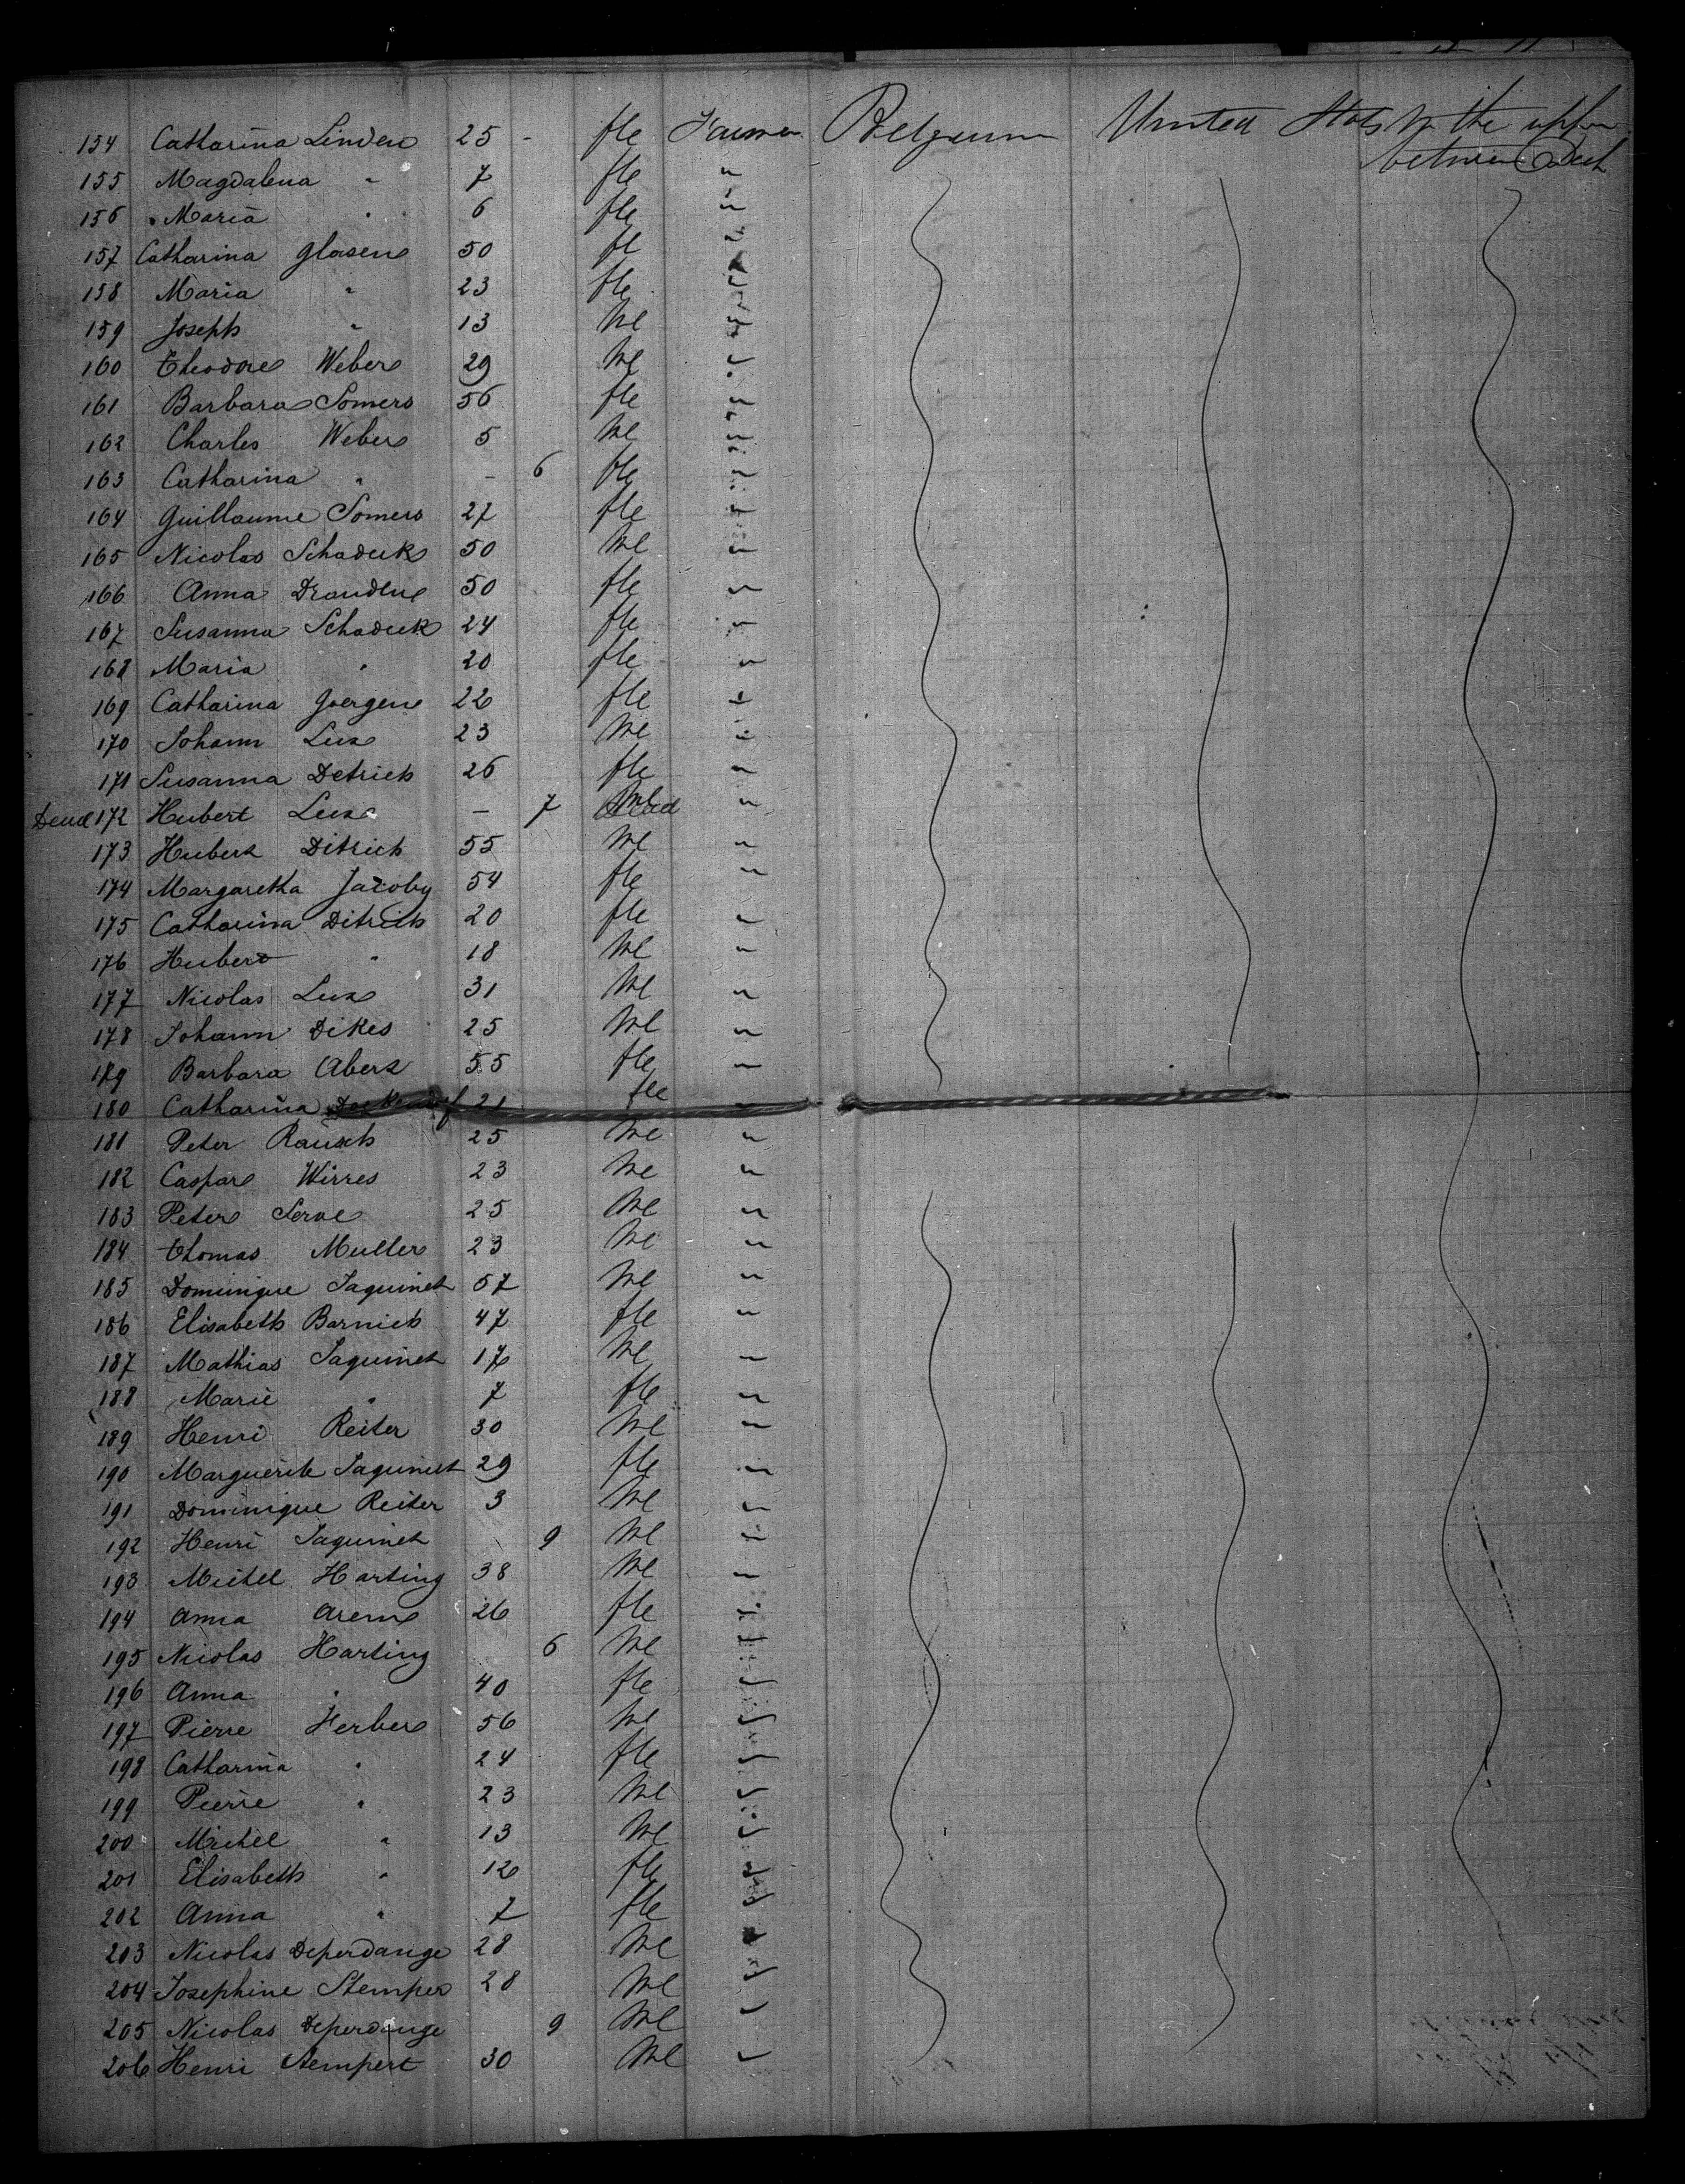 154 Catharina Linden 25 - fle Farmer Belgium United Stats In the upper
between Deck
155 Magdalena " 7 fle "
156 Maria " 6 fle "
157 Catharina Glasen 50 fl "
158 Maria " 23 fle "
159 Joseph " 13 Ml "
160 Theodore Weber 29 Ml "
161 Barbara Somers 56 fle "
162 Charles Weber 5 Ml "
163 Catharina " - 6 fle "
164 Guillaume Somers 27 fle "
165 Nicolas Schadeck 50 Ml "
166 Anna 50 fle "
167 Susanna Schadeck 24 fle "
168 Maria " 20 fle "
169 Catharina Goergen 22 fle "
170 Johann Lux 23 Ml "
171 Susanna Detrich 26 fle "
Dead 172 Hubert Lux - 7 "
173 Hubert Ditrich 55 Ml "
174 Margaretha Jacoby 54 fle "
175 Catharina Ditrich 20 fle "
176 Hubert " 18 Ml "
177 Nicolas Lux 31 Ml "
178 Johann Dikes 25 Ml "
179 Barbara Abert 55 fle "
180 Catharina 21 fle "
181 Peter Rausch 25 Ml "
182 Caspar Wirres 23 Ml "
183 Peter Serve 25 Ml "
184 Thomas Muller 23 Ml "
185 Dominique Jaquinet 57 Ml "
186 Elisabeth Barnich 47 fle "
187 Mathias Jaquinet 17 Ml "
188 Marie " 7 fle "
189 Henri Reiter 30 Ml "
190 Marguerite Jaquinet 29 fle "
191 Dominique Reiter 3 Ml "
192 Henri Jaquinet 9 Ml "
193 Michel Harting 38 Ml "
194 Anna Arens 26 fle "
195 Nicolas Harting 6 Ml "
196 Anna " 40 fle "
197 Pierre Ferber 56 Ml "
198 Catharina " 24 fle "
199 Pierre " 23 Ml "
200 Michel " 13 Ml "
201 Elisabeth " 12 fle "
202 Anna " 7 fle "
203 Nicolas Deperdange 28 Ml "
204 Josephine Stemper 28 Ml "
205 Nicolas Deperdange 9 Ml "
206 Henri Stempert 30 Ml "